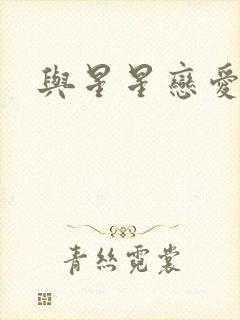 與星星戀愛
青絲霓裳